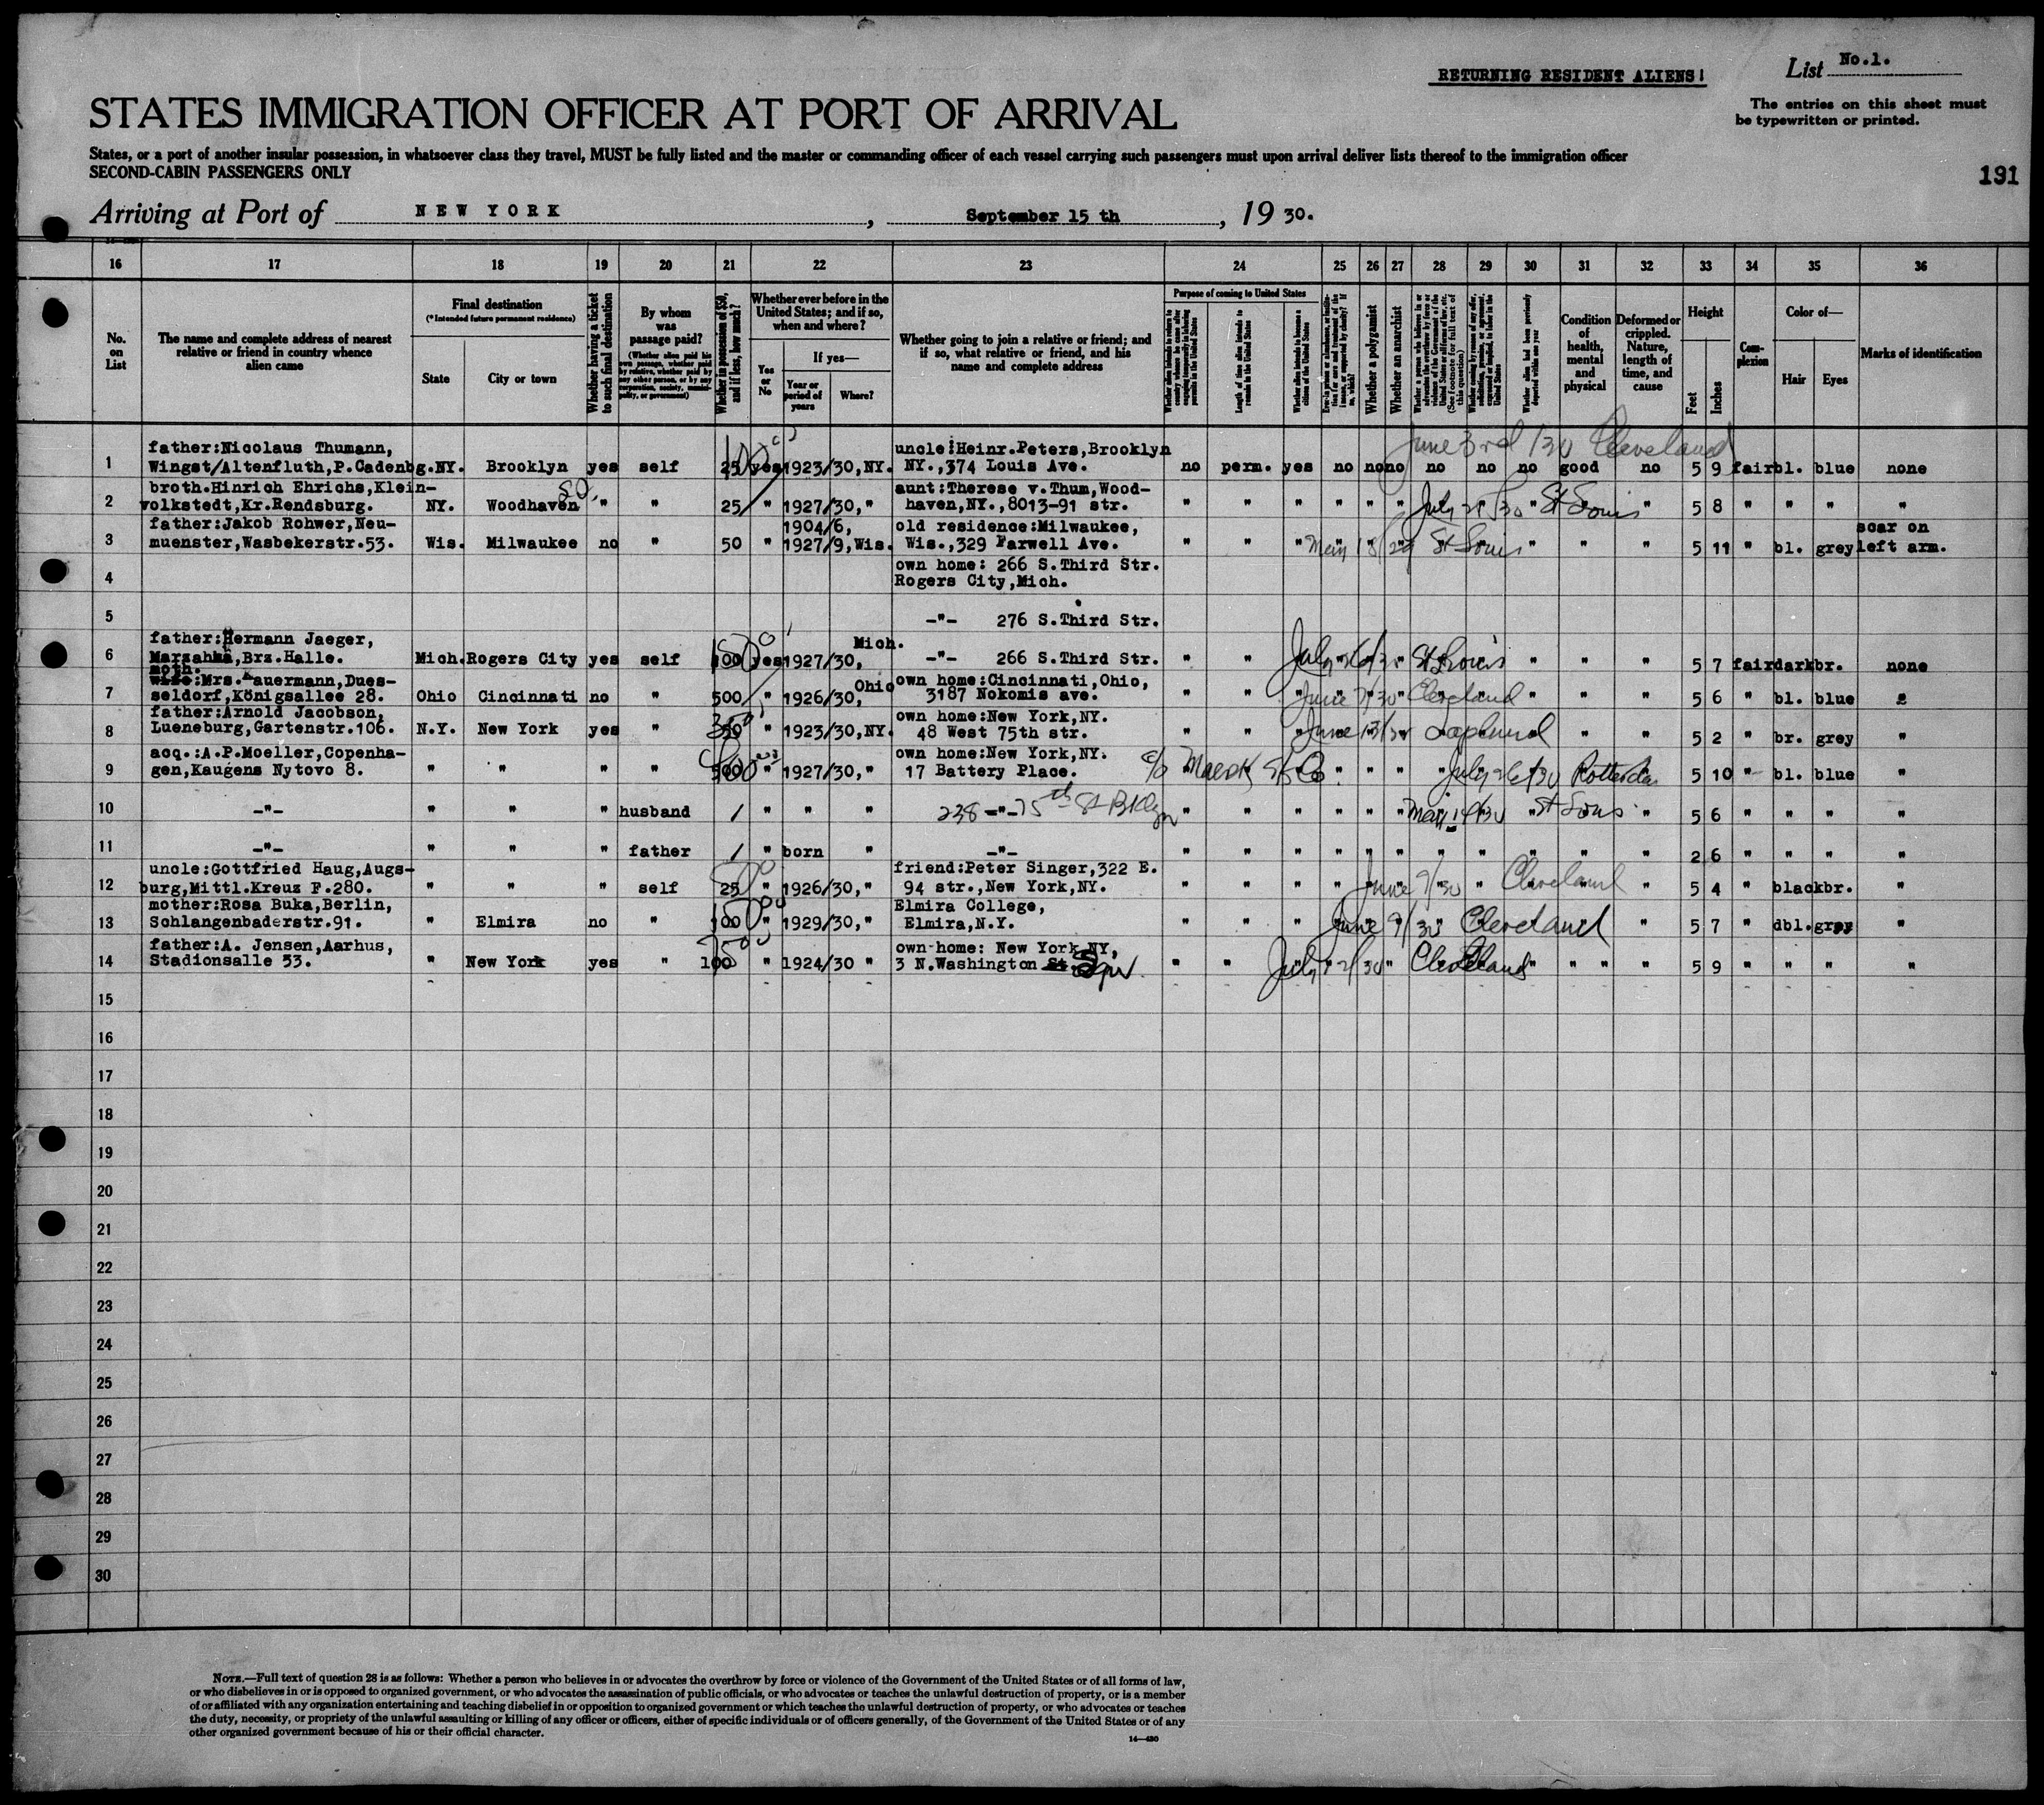 RETURNING RESIDENT ALIENS!
List No.1.
STATES IMMIGRATION OFFICER AT PORT OF ARRIVAL
The entries on this sheet must
be typewritten or printed.
States, or a port of another insular possession, in whatsoever class they travel, MUST be fully listed and the master or commanding officer of each vessel carrying such passengers must upon arrival deliver lists thereof to the immigration officer
SECOND-CABIN PASSENGERS ONLY
191
Arriving at Port of NEW YORK, September 15 th, 19 30.
16 17 18 19 20 21 22 23 24 25 26 27 28 29 30 31 32 33 34 35 36
No. on List
The name and complete address of nearest
relative or friend in country whence
alien came
Final destination
(*Intended future permanent residence)
State
City or town
Whether having a ticket
to such final destination
By whom
was
passage paid?
(Whether alien paid his
own passage, whether paid
by relative, whether paid by
any other person, or by any
corporation, society, munici-
pality, or government)
Whether in possession of $50,
and if less, how much?
Whether ever before in the
United States; and if so,
when and where?
Yes
or
No
If yes—
Year or
period of
years
Where?
Whether going to join a relative or friend; and
if so, what relative or friend, and his
name and complete address
Purpose of coming to United States
Length of time alien intends to
remain in the United States
Whether alien intends to become a
citizen of the United States
Whether a polygamist
Whether an anarchist
Whether alien had been previously
deported within one year
Condition
of
health,
mental
and
physical
Deformed or
crippled.
Nature,
length of
time, and
cause
Height
Feet
Inches
Com-
plexion
Color of—
Hair
Eyes
Marks of identification
June 3rd /30 Cleveland
father:Nicolaus Thumann, uncle:Heinr.Peters,Brooklyn
1 Wingst/Altenfluth,P.Cadenbg. NY. Brooklyn yes self 25 yes 1923/30,NY. NY.,374 Louis Ave. no perm. yes no no no no no no good no 5 9 fair bl. blue none
broth.Hinrich Ehrichs,Klein- aunt:Therese v.Thum,Wood-
2 volkstedt,Kr.Rendsburg. NY. Woodhaven " " 25 " 1927/30," haven,NY.,8013-91 str. " " " " " " July /30 St Louis " 5 8 " " " "
father:Jakob Rohwer,Neu- 1904/6, old residence:Milwaukee, scar on
3 muenster,Wasbekerstr.53. Wis. Milwaukee no " 50 " 1927/9,Wis. Wis.,329 Farwell Ave. " " " May 15/29 St Louis " " " 5 11 " bl. grey left arm.
own home: 266 S.Third Str.
4 Rogers City,Mich.
5 -"- 276 S.Third Str.
father:Hermann Jaeger, Mich.
6 Marzahna,Brz.Halle. Mich. Rogers City yes self 100 yes 1927/30, -"- 266 S.Third Str. " " July 26/30 St Louis " " " 5 7 fair dark br. none
moth.
wife:Mrs. Lauermann,Dues- Ohio own home:Cincinnati,Ohio,
7 seldorf,Königsallee 28. Ohio Cincinnati no " 500 " 1926/30, 3187 Nokomis ave. " " " June 7/30 Cleveland " " " 5 6 " bl. blue "
father:Arnold Jacobson, own home:New York,NY.
8 Lueneburg,Gartenstr.106. N.Y. New York yes " 50 " 1923/30,NY. 48 West 75th str. " " " June 13/30 " " " 5 2 " br. grey "
acq.:A.P.Moeller,Copenha- own home:New York,NY.
9 gen,Kaugens Nytovo 8. " " " " 500 " 1927/30," 17 Battery Place. c/o Maersk " " " " July 26/30 Rotterdam 5 10 " bl. blue "
10 -"- " " " husband / " " " 238 -"- 75th St Bklyn " " " " " " May 14/30 St Louis " 5 6 " " " "
11 -"- " " " father / " born " -"- " " " " " " " " " " " 2 6 " " " "
uncle:Gottfried Haug,Augs- friend:Peter Singer,322 E.
12 burg,Mittl.Kreuz F.280. " " " self 25 " 1926/30," 94 str.,New York,NY. " " " " June 9/30 " Cleveland " 5 4 " black br. "
mother:Rosa Buka,Berlin, Elmira College,
13 Schlangenbaderstr.91. " Elmira no " 100 " 1929/30," Elmira,N.Y. " " " June 9/30 Cleveland " 5 7 " dbl. grey "
father:A. Jensen,Aarhus, own home: New York,NY,
14 Stadionsalle 53. " New York yes " 100 " 1924/30 " 3 N.Washington St. Sqr. " " July 2/30 Cleveland " " " 5 9 " " " "
15
16
17
18
19
20
21
22
23
24
25
26
27
28
29
30
NOTE.—Full text of question 28 is as follows: Whether a person who believes in or advocates the overthrow by force or violence of the Government of the United States or of all forms of law,
or who disbelieves in or is opposed to organized government, or who advocates the assassination of public officials, or who advocates or teaches the unlawful destruction of property, or is a member
of or affiliated with any organization entertaining and teaching disbelief in or opposition to organized government or which teaches the unlawful destruction of property, or who advocates or teaches
the duty, necessity, or propriety of the unlawful assaulting or killing of any officer or officers, either of specific individuals or of officers generally, of the Government of the United States or of any
other organized government because of his or their official character.
14—430